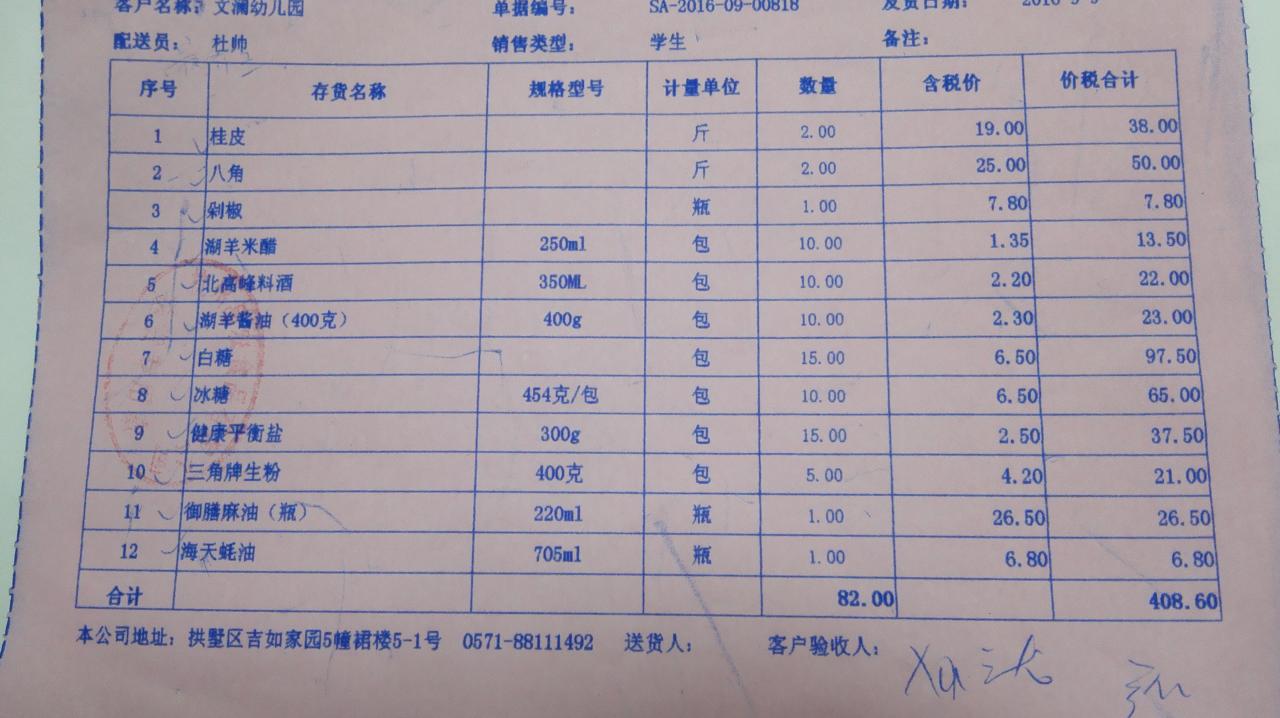 客户名称：文澜幼儿园 单据编号： SA-2016-09-00818 发货日期： 2016-9-9
配送员： 杜帅 销售类型： 学生 备注：
序号 存货名称 规格型号 计量单位 数量 含税价 价税合计
1 桂皮 斤 2.00 19.00 38.00
2 八角 斤 2.00 25.00 50.00
3 剁椒 瓶 1.00 7.80 7.80
4 湖羊米醋 250ml 包 10.00 1.35 13.50
5 北高峰料酒 350ML 包 10.00 2.20 22.00
6 湖羊酱油（400克） 400g 包 10.00 2.30 23.00
7 白糖 包 15.00 6.50 97.50
8 冰糖 454克/包 包 10.00 6.50 65.00
9 健康平衡盐 300g 包 15.00 2.50 37.50
10 三角牌生粉 400克 包 5.00 4.20 21.00
11 御膳麻油（瓶） 220ml 瓶 1.00 26.50 26.50
12 海天蚝油 705ml 瓶 1.00 6.80 6.80
合计 82.00 408.60
本公司地址：拱墅区吉如家园5幢裙楼5-1号 0571-88111492 送货人： 客户验收人：